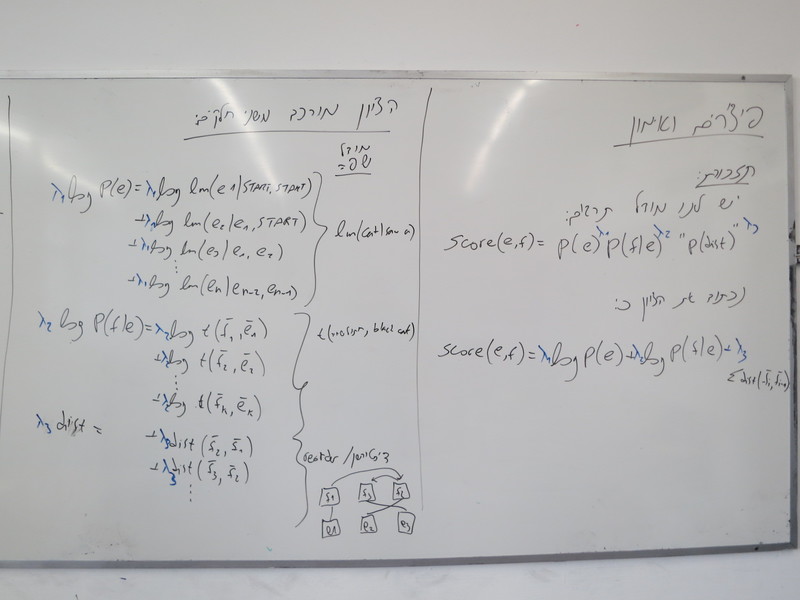 פיצ'רים ואימון
תזכורת:
יש לנו מודל תרגום:
score(e,f) = p(e)^λ1 p(f|e)^λ2 "p(dist)"^λ3
נכתוב את הציון כ:
score(e,f) = λ1 log P(e) + λ2 log P(f|e) + λ3
הציון מורכב משני חלקים:
מודל
שפה
λ1 log P(e) = λ1 log lm(e1|START, START)
+λ1 log lm(e2|e1, START)
+λ1 log lm(e3|e1, e2)
⋮
+λ1 log lm(en|en-2, en-1)
lm(cat|saw a)
λ2 log P(f|e) = λ2 log t(f̄1, ē1)
+λ2 log t(f̄2, ē2)
⋮
+λ2 log t(f̄k, ēk)
λ3 dist =
+λ3 dist(f̄2, f̄1)
+λ3 dist(f̄3, f̄2)
⋮
reorder/דיסטורשן
f1 f3 f2
e1 e2 e3